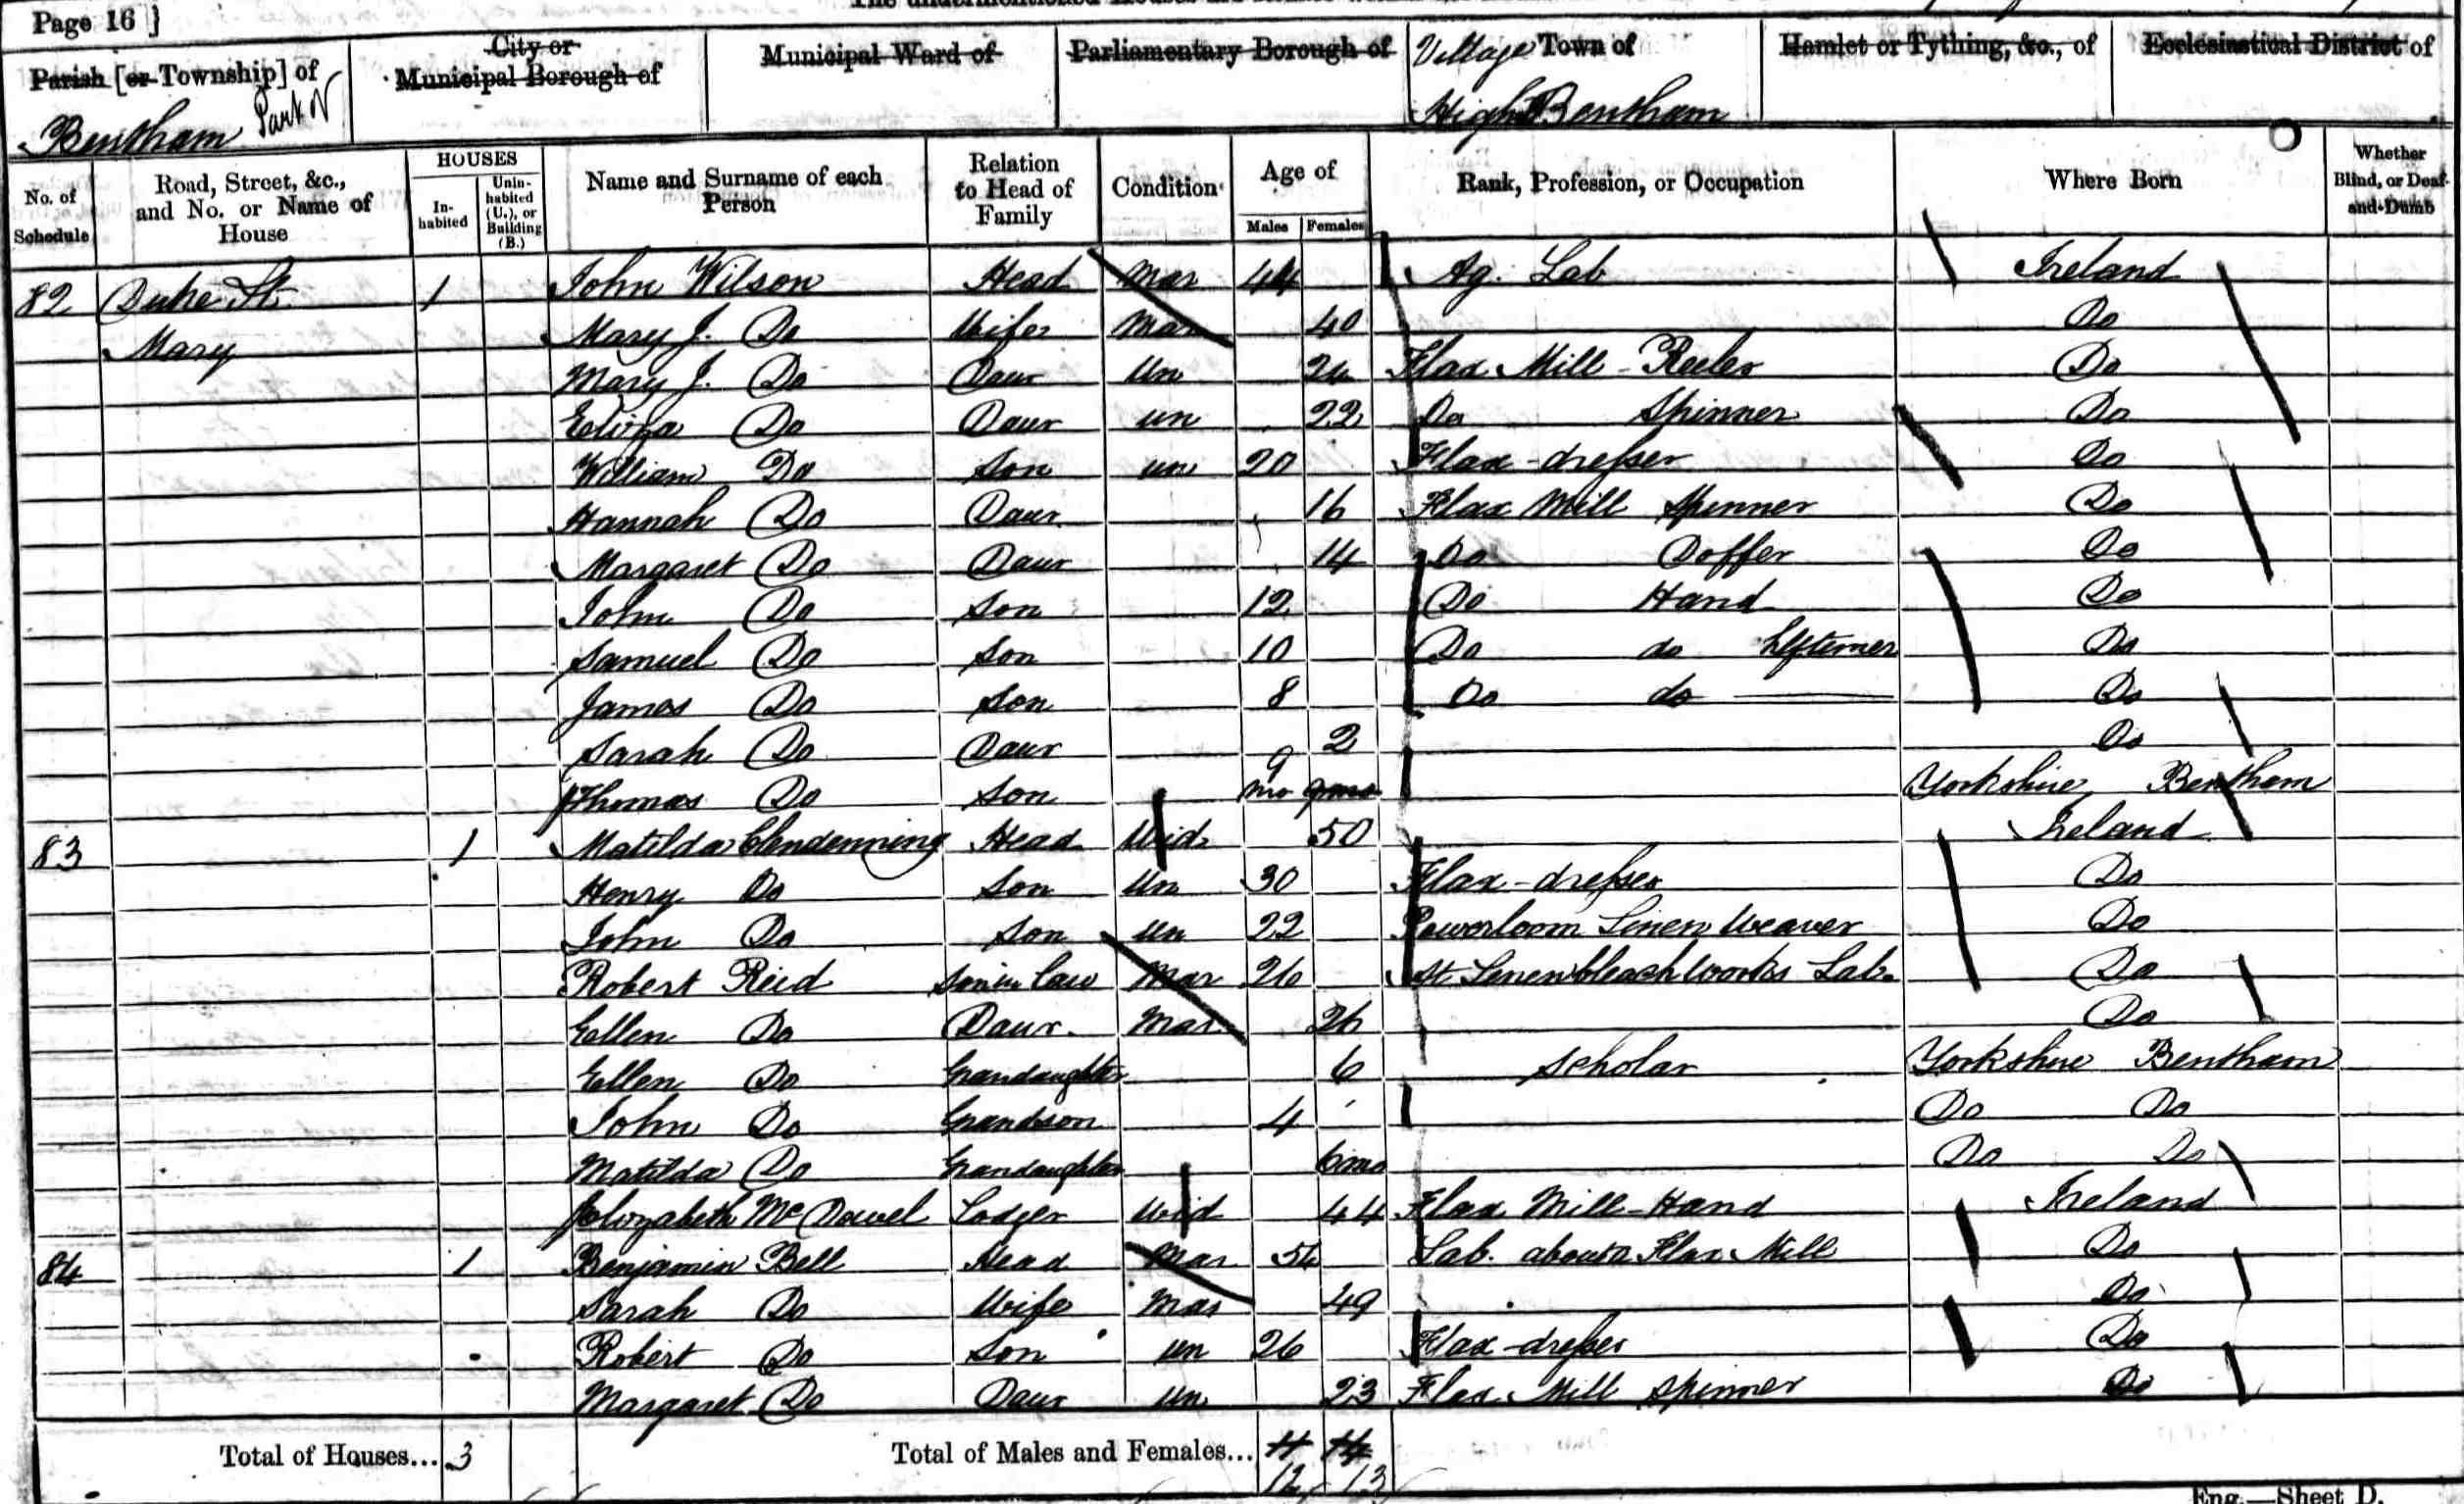 Page 16 }
Parish [or Township] of
Bentham Part of
City or
Municipal Borough of
Municipal Ward of
Parliamentary Borough of
Village Town of
High Bentham
Hamlet or Tything, &c., of
Ecclesiastical District of
No. of Schedule
Road, Street, &c., and No. or Name of House
HOUSES
In-habited
Unin-habited (U.), or Building (B.)
Name and Surname of each Person
Relation to Head of Family
Condition
Age of
Males
Females
Rank, Profession, or Occupation
Where Born
Whether Blind, or Deaf-and-Dumb
82 Duke St. 1 John Wilson Head Mar 44 Ag. Lab Ireland
Mary Mary J. Do Wife Mar 40 Do
Mary J. Do Daur Un 24 Flax Mill - Reeler Do
Eliza Do Daur un 22 Do Spinner Do
William Do Son un 20 Flax-dresser Do
Hannah Do Daur 16 Flax Mill Spinner Do
Margaret Do Daur 14 Do Doffer Do
John Do Son 12 Do Hand Do
Samuel Do Son 10 Do do Do
James Do Son 8 Do do Do
Sarah Do Daur 2 Do
Thomas Do Son 9 mo 9mo Yorkshire Bentham
83 1 Matilda Clendenning Head Wid 50 Ireland
Henry Do Son Un 30 Flax-dresser Do
John Do Son Un 22 Powerloom Linen Weaver Do
Robert Reid Son in law Mar 26 At Linen bleach works Lab. Do
Ellen Do Daur. Mar 26 Do
Ellen Do Grandaughter 6 Scholar Yorkshire Bentham
John Do Grandson 4 Do Do
Matilda Do Grandaughter 6mo Do Do
Elizabeth Mc Dowel Lodger Wid 44 Flax Mill-Hand Ireland
84 1 Benjamin Bell Head Mar 54 Lab. about a Flax Mill Do
Sarah Do Wife Mar 49 Do
Robert Do Son un 26 Flax-dresser Do
Margaret Do Daur un 23 Flax Mill Spinner Do
Total of Houses... 3
Total of Males and Females... 11 14
12 13
Eng.—Sheet D.